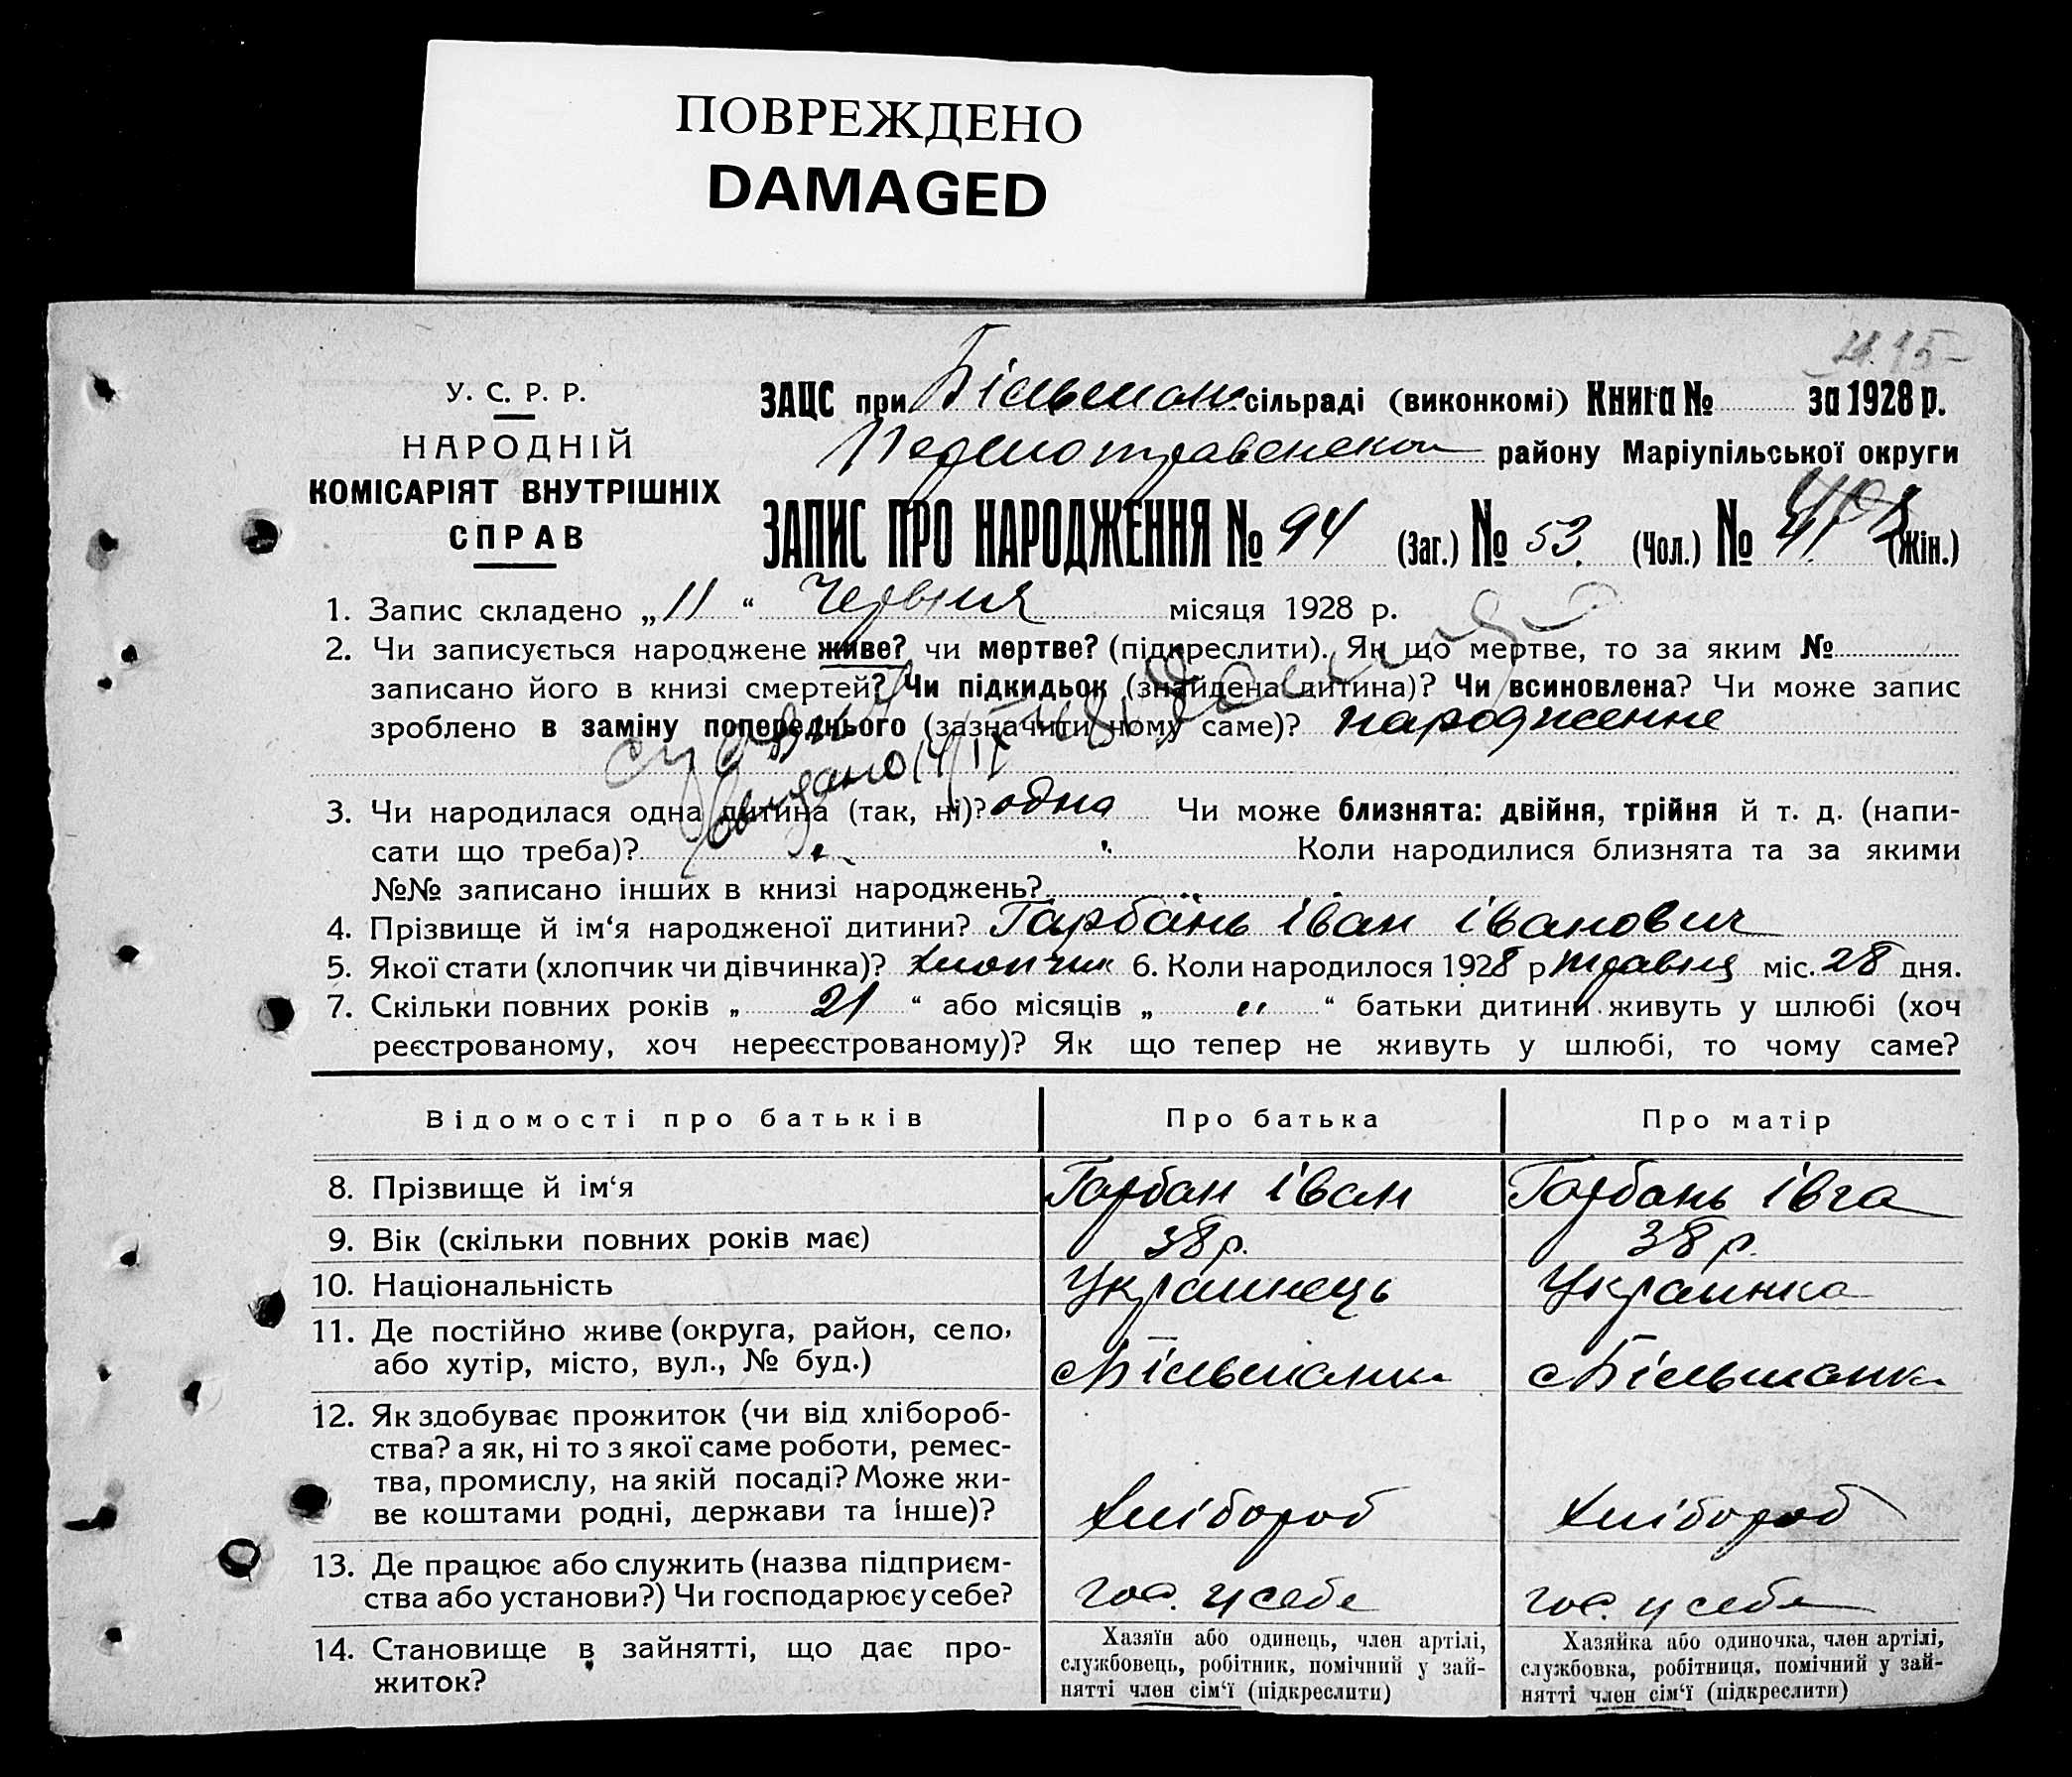 ПОВРЕЖДЕНО
DAMAGED
У. С. Р. Р.
НАРОДНІЙ
КОМІСАРІЯТ ВНУТРІШНІХ
СПРАВ
ЗАЦС при Більманк. сільраді (виконкомі) Книга № за 1928 р.
району Маріупільської округи
ЗАПИС ПРО НАРОДЖЕННЯ № 94 (Заг.) № 53. (Чол.) № 41. (Жін.)
1. Запис складено „ 11 “ Червня місяця 1928 р.
2. Чи записується народжене живе? чи мертве? (підкреслити). Як що мертве, то за яким №
записано його в книзі смертей? Чи підкидьок (знайдена дитина)? Чи всиновлена? Чи може запис
зроблено в заміну попереднього (зазначити чому саме)? народженне
3. Чи народилася одна дитина (так, ні)? одна Чи може близнята: двійня, трійня й т. д. (напи-
сати що треба)? Коли народилися близнята та за якими
№№ записано інших в книзі народжень?
4. Прізвище й ім‘я народженої дитини? Гарбань Іван Іванович
5. Якої стати (хлопчик чи дівчинка)? Хлопчик 6. Коли народилося 1928 р травня міс. 28 дня.
7. Скільки повних років „ 21 “ або місяців „ " “ батьки дитини живуть у шлюбі (хоч
реєстрованому, хоч нереєстрованому)? Як що тепер не живуть у шлюбі, то чому саме?
Відомості про батьків Про батька Про матір
8. Прізвище й ім‘я Гарбан Іван Гарбань Івга
9. Вік (скільки повних років має) 38 р. 38 р.
10. Національність Украинець Украинка
11. Де постійно живе (округа, район, село,
або хутір, місто, вул., № буд.) с Більманка с Більманка
12. Як здобуває прожиток (чи від хлібороб-
ства? а як, ні то з якої саме роботи, ремес-
тва, промислу, на якій посаді? Може жи-
ве коштами родні, держави та інше)? Хлібороб Хлібороб
13. Де працює або служить (назва підприєм-
ства або установи?) Чи господарює у себе? гос. у себе гос. у себе
14. Становище в зайнятті, що дає про-
житок?
Хазяїн або одинець, член артілі,
службовець, робітник, помічний у зай-
нятті член сім‘ї (підкреслити)
Хазяйка або одиночка, член артілі,
службовка, робітниця, помічний у зай-
нятті член сім‘ї (підкреслити)